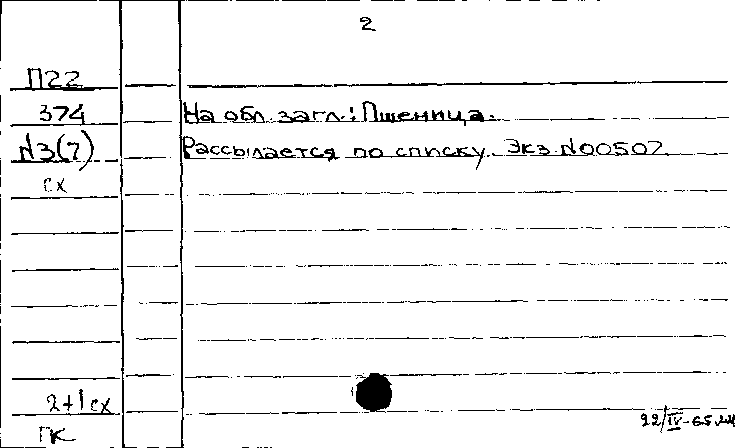 2
П22
374 На обл. загл.: Пшеница.
N3(7) Рассылается по списку. Экз. N00507.
сх
2+1сх
22/IV-65
ГК